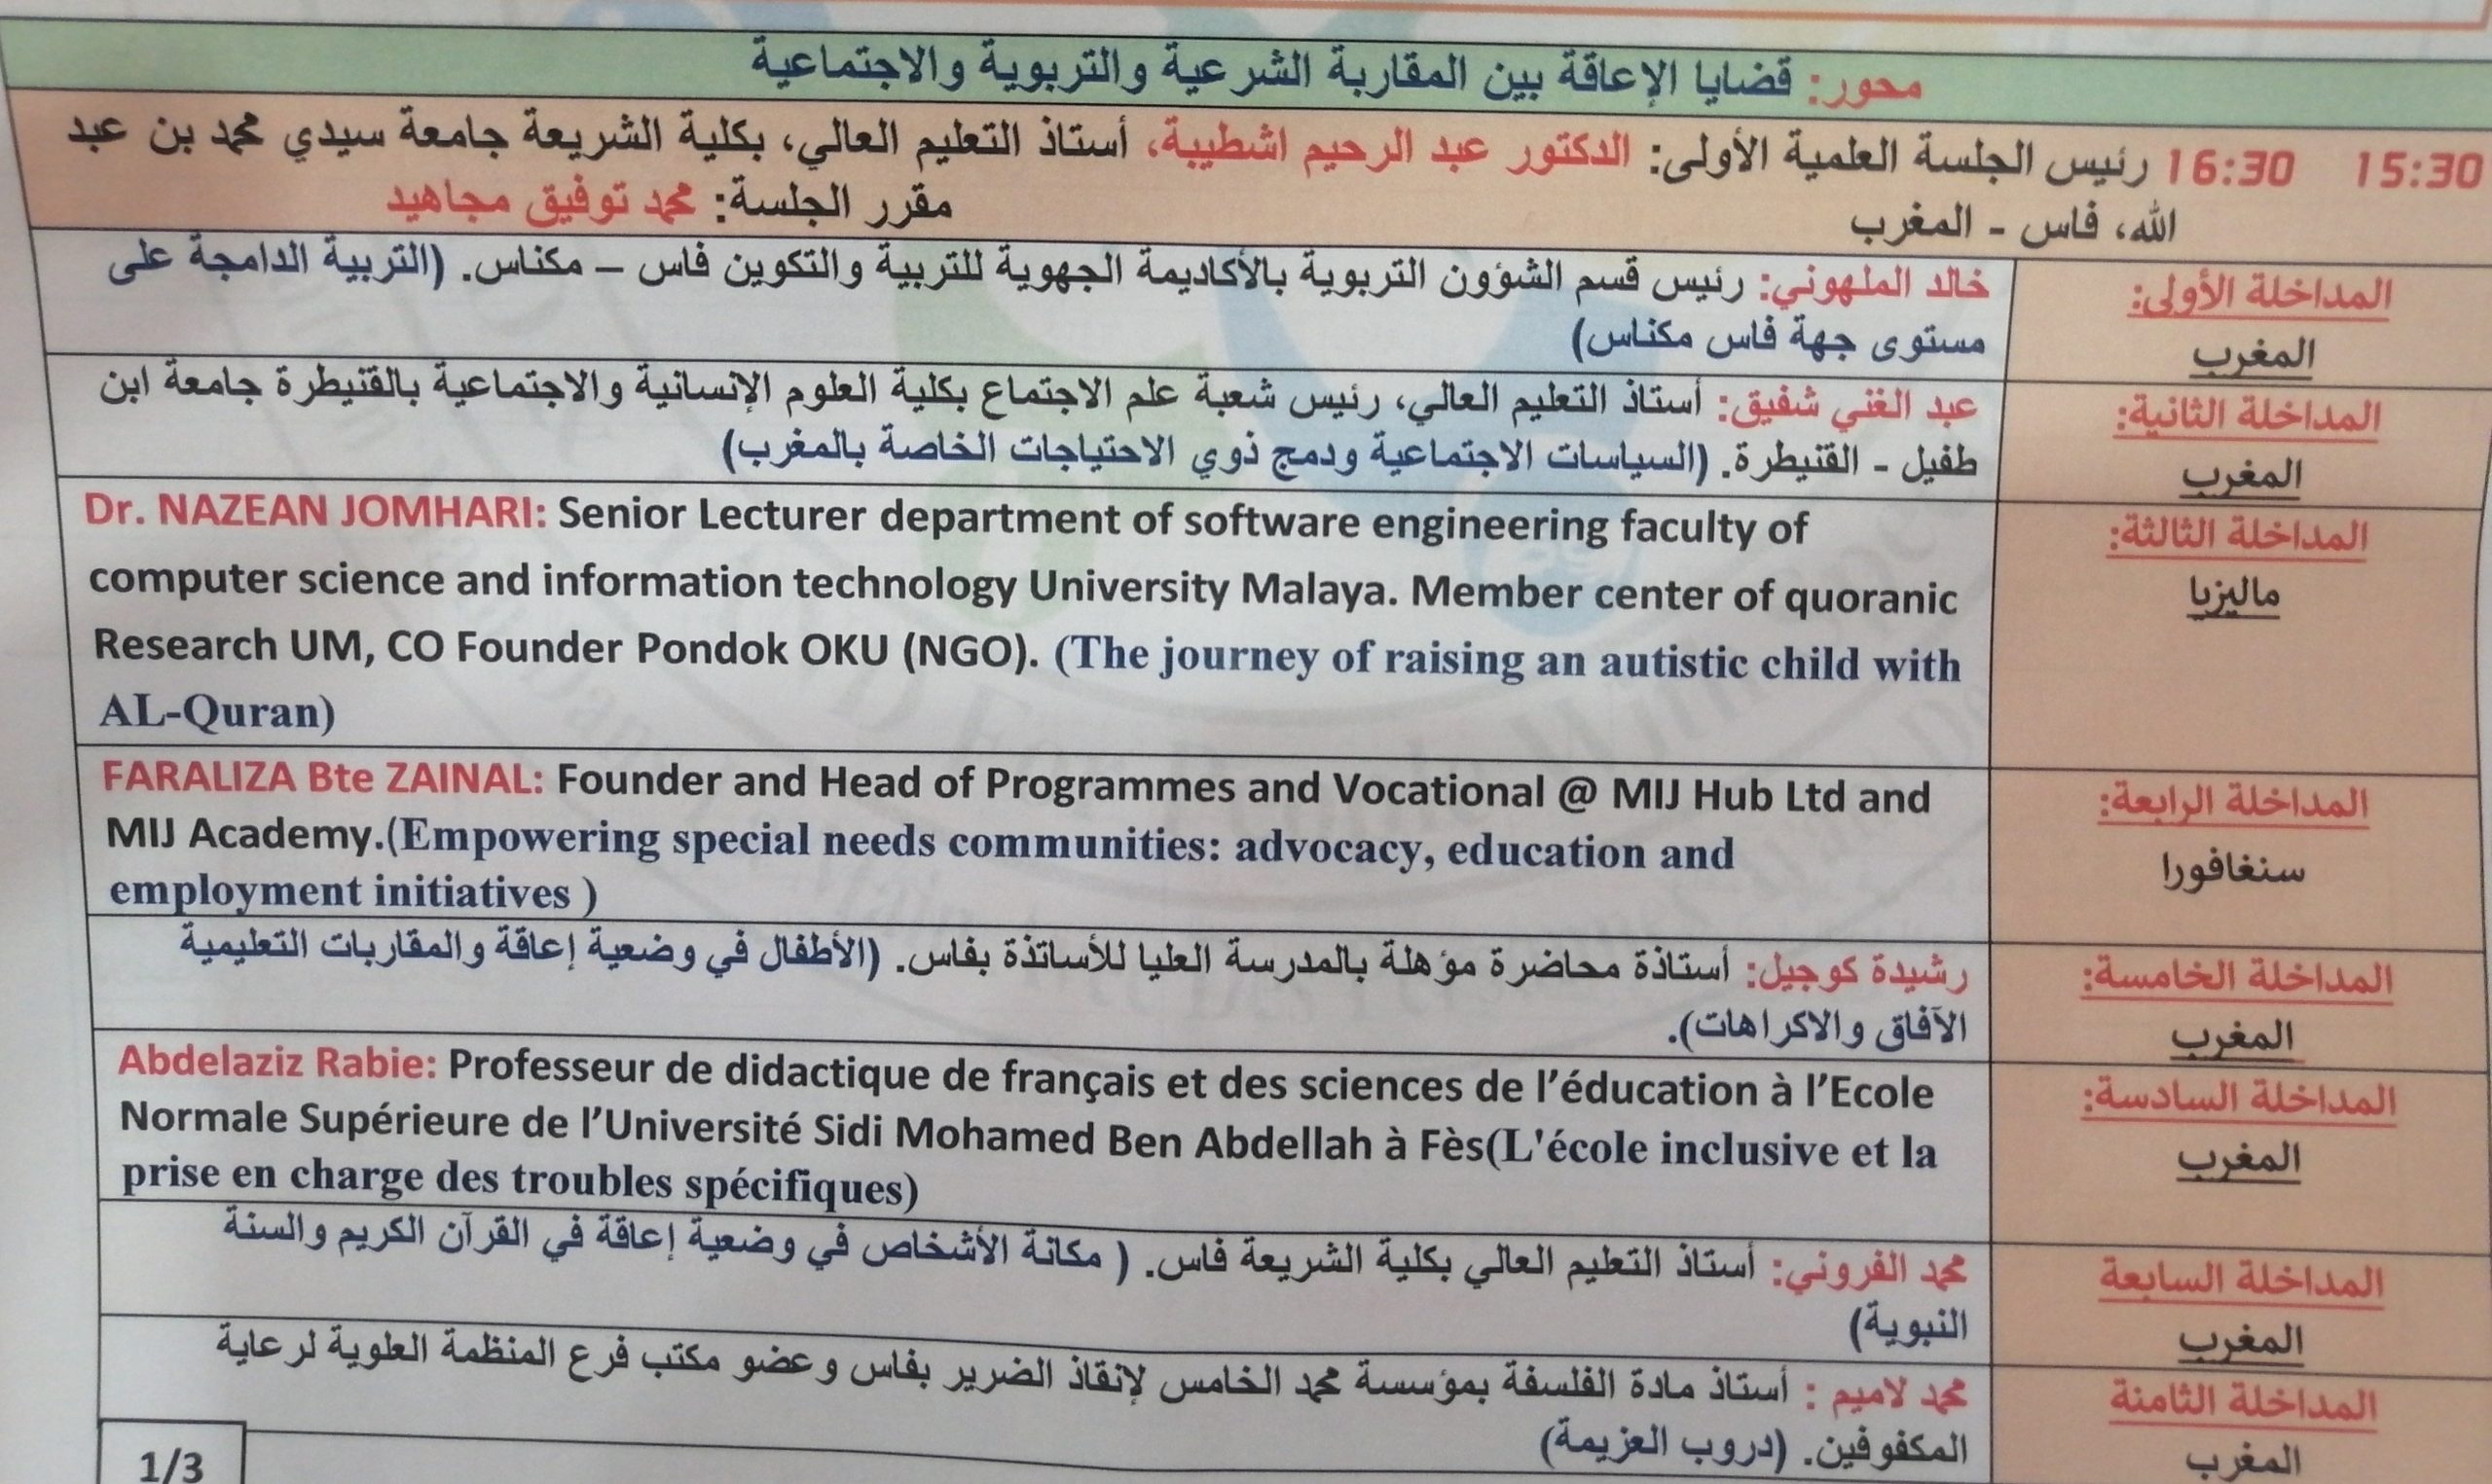 محور: قضايا الإعاقة بين المقاربة الشرعية والتربوية والاجتماعية
15:30 16:30 رئيس الجلسة العلمية الأولى: الدكتور عبد الرحيم اشطيبة، أستاذ التعليم العالي، بكلية الشريعة جامعة سيدي محمد بن عبد
الله، فاس - المغرب مقرر الجلسة: محمد توفيق مجاهيد
المداخلة الأولى:
المغرب
خالد الملهوني: رئيس قسم الشؤون التربوية بالأكاديمة الجهوية للتربية والتكوين فاس – مكناس. (التربية الدامجة على
مستوى جهة فاس مكناس)
المداخلة الثانية:
المغرب
عبد الغني شفيق: أستاذ التعليم العالي، رئيس شعبة علم الاجتماع بكلية العلوم الإنسانية والاجتماعية بالقنيطرة جامعة ابن
طفيل - القنيطرة. (السياسات الاجتماعية ودمج ذوي الاحتياجات الخاصة بالمغرب)
المداخلة الثالثة:
ماليزيا
Dr. NAZEAN JOMHARI: Senior Lecturer department of software engineering faculty of
computer science and information technology University Malaya. Member center of quoranic
Research UM, CO Founder Pondok OKU (NGO). (The journey of raising an autistic child with
AL-Quran)
المداخلة الرابعة:
سنغافورا
FARALIZA Bte ZAINAL: Founder and Head of Programmes and Vocational @ MIJ Hub Ltd and
MIJ Academy.(Empowering special needs communities: advocacy, education and
employment initiatives )
المداخلة الخامسة:
المغرب
رشيدة كوجيل: أستاذة محاضرة مؤهلة بالمدرسة العليا للأساتذة بفاس. (الأطفال في وضعية إعاقة والمقاربات التعليمية
الآفاق والاكراهات).
المداخلة السادسة:
المغرب
Abdelaziz Rabie: Professeur de didactique de français et des sciences de l’éducation à l’Ecole
Normale Supérieure de l’Université Sidi Mohamed Ben Abdellah à Fès(L'école inclusive et la
prise en charge des troubles spécifiques)
المداخلة السابعة
المغرب
محمد الفروني: أستاذ التعليم العالي بكلية الشريعة فاس. ( مكانة الأشخاص في وضعية إعاقة في القرآن الكريم والسنة
النبوية)
المداخلة الثامنة
المغرب
محمد لاميم : أستاذ مادة الفلسفة بمؤسسة محمد الخامس لإنقاذ الضرير بفاس وعضو مكتب فرع المنظمة العلوية لرعاية
المكفوفين. (دروب العزيمة)
1/3